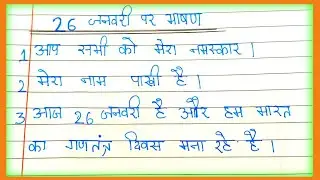 26 जनवरी पर भाषण
1 आप सभी को मेरा नमस्कार ।
2 मेरा नाम पाखी है ।
3 आज 26 जनवरी है और हम भारत
का गणतंत्र दिवस मना रहे है ।